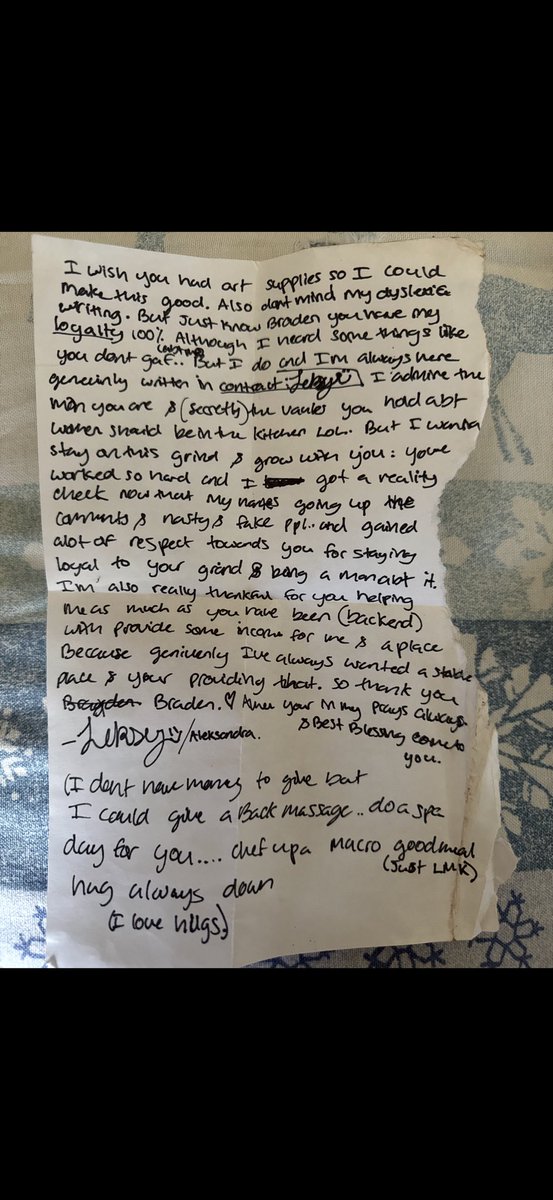 I wish you had art supplies so I could
make this good. Also dont mind my dyslexic
writing. But Just know Braden you have my
loyalty 100%. Although I heard some things like
you dont gaf.. But I do and I'm always here
genuinly written in contract: I admire the
man you are & (secretly) the values you had abt
women should be in the kitchen LOL. But I wanna
stay on this grind & grow with you: youve
worked so hard and I got a reality
check now that my names going up the
comments & nasty & fake ppl.. and gained
alot of respect towards you for staying
loyal to your grind & being a man abt it.
I'm also really thankful for you helping
me as much as you have been (backend)
with provide some income for me & a place
Because geniuenly I've always wanted a stable
place & your providing that. so thank you
Braden. ♡ your in my prays always
& Best Blessing come to
you.
/Aleksandra.
(I dont have money to give but
I could give a Back massage.. do a spa
day for you.... chef up a macro good meal
(Just LMK)
hug always down
(I love hugs)